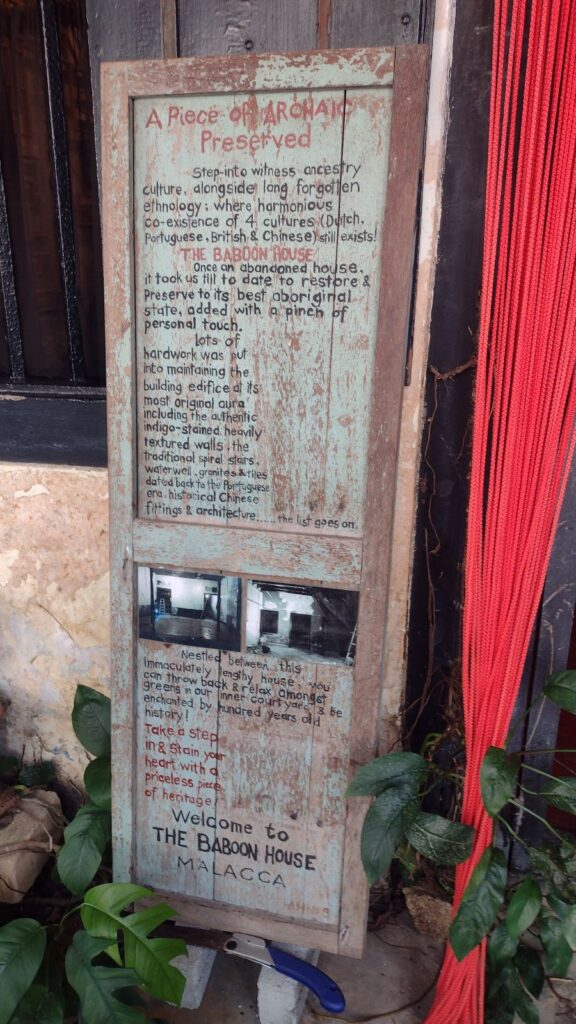 A Piece of ARCHAIC
Preserved
Step-into witness ancestry
culture, alongside long forgotten
ethnology; where harmonious
co-existence of 4 cultures (Dutch,
Portuguese, British & Chinese) still exists!
THE BABOON HOUSE
Once an abandoned house,
it took us till to date to restore &
Preserve to its best aboriginal
state, added with a pinch of
personal touch.
Lots of
hardwork was put
into maintaining the
building edifice at its
most original aura
including the authentic
indigo-stained heavily
textured walls, the
traditional spiral stairs,
waterwell, granites & tiles
dated back to the Portuguese
era, historical Chinese
fittings & architecture...... the list goes on.
Nestled between this
immaculately lengthy house, you
can throw back & relax amongst
greens in our inner courtyard, & be
enchanted by hundred years old
history!
Take a step
in & stain your
heart with a
priceless piece
of heritage!
Welcome to
THE BABOON HOUSE
MALACCA